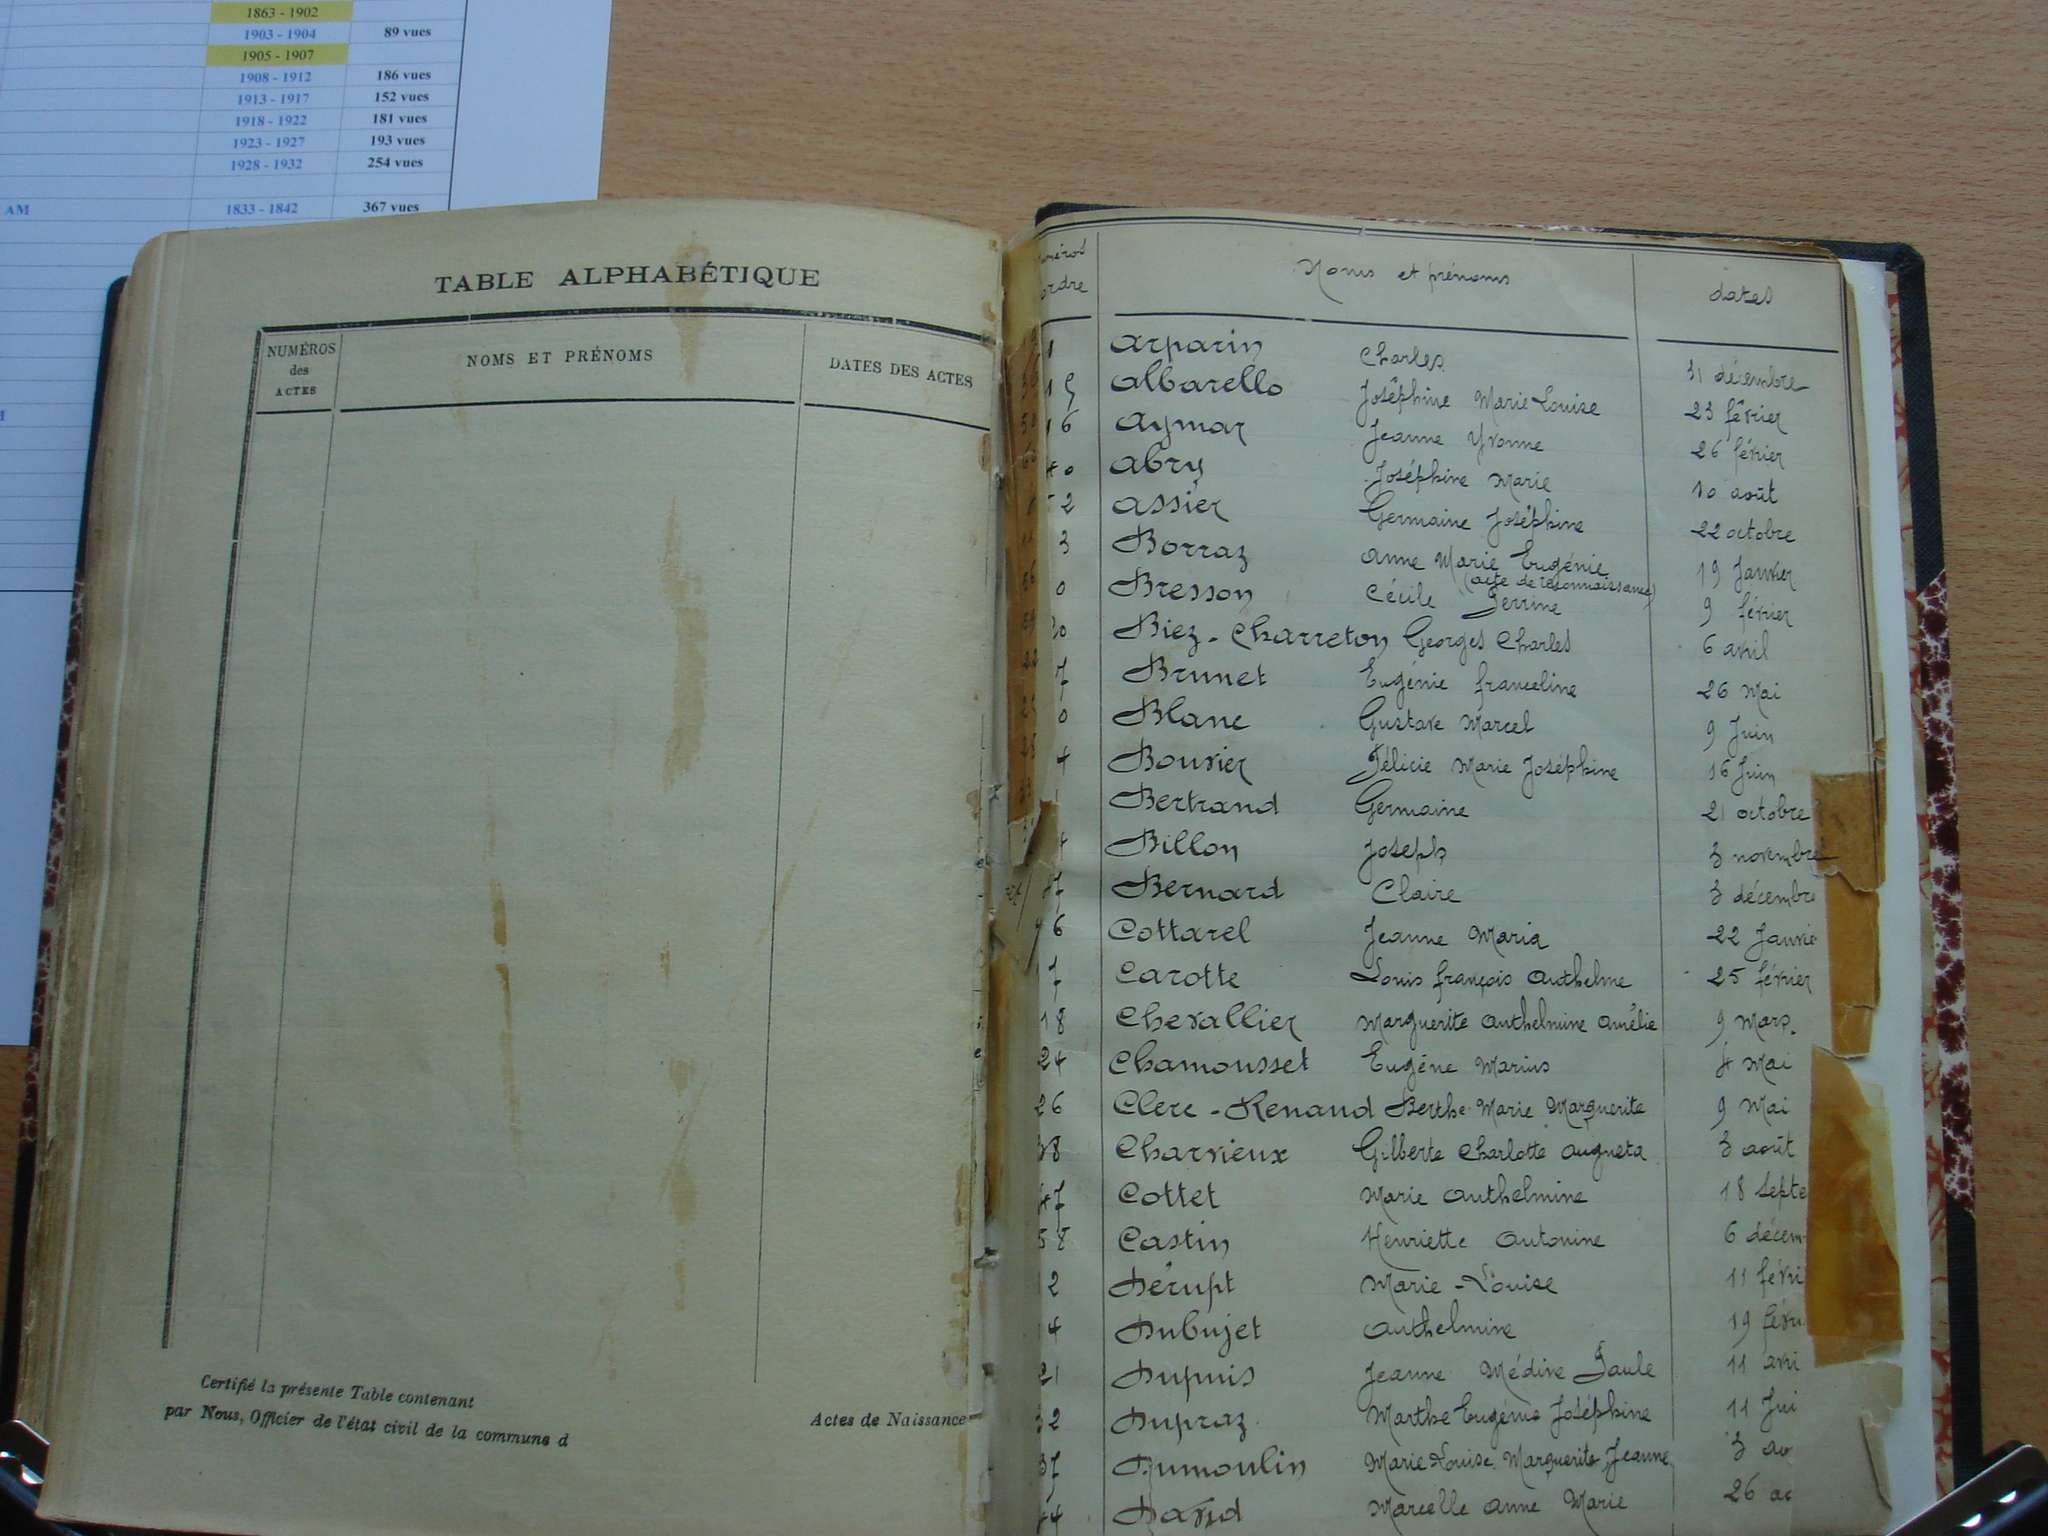 1863 - 1902
1903 - 1904 89 vues
1905 - 1907
1908 - 1912 186 vues
1913 - 1917 152 vues
1918 - 1922 181 vues
1923 - 1927 193 vues
1928 - 1932 254 vues
AM 1833 - 1842 367 vues
TABLE ALPHABÉTIQUE
NUMÉROS
des
ACTES
NOMS ET PRÉNOMS
DATES DES ACTES
Certifié la présente Table contenant
par Nous, Officier de l'état civil de la commune d
Actes de Naissance
Noms et prénoms dates
1 Arparin Charles 31 décembre
15 Albarello Joséphine Marie Louise 23 février
16 Aymar Jeanne Yvonne 26 février
40 Abry Joséphine Marie 10 août
52 Assier Germaine Joséphine 22 octobre
3 Borraz Anne Marie Eugénie 19 Janvier
(acte de reconnaissance)
0 Bresson Cécile Perrine 9 février
20 Biez-Charreton Georges Charles 6 avril
7 Brunet Eugénie franceline 26 Mai
0 Blanc Gustave Marcel 9 Juin
4 Bouvier Félicie Marie Joséphine 16 Juin
Bertrand Germaine 21 octobre
4 Billon Joseph 3 novembre
7 Bernard Claire 3 décembre
6 Cottarel Jeanne Maria 22 Janvie
7 Carotte Louis françois Anthelme 25 février
18 Chevallier Marguerite Anthelmine Amélie 9 Mars.
24 Chamousset Eugène Marius 4 Mai
26 Clerc-Renaud Berthe Marie Marguerite 9 Mai
38 Charvieux Gilberte Charlotte Augusta 3 août
47 Cottet Marie Anthelmine 18 septe
58 Castin Henriette Antonine 6 décem
12 Dérupt Marie-Louise 11 févri
14 Dubujet Anthelmine 19 févr
21 Dupuis Jeanne Médive Paule 11 avri
32 Dupraz Marthe Eugénie Joséphine 11 Jui
37 Dumoulin Marie Louise Marguerite Jeanne 3 ao
44 David Marcelle Anne Marie 26 ao